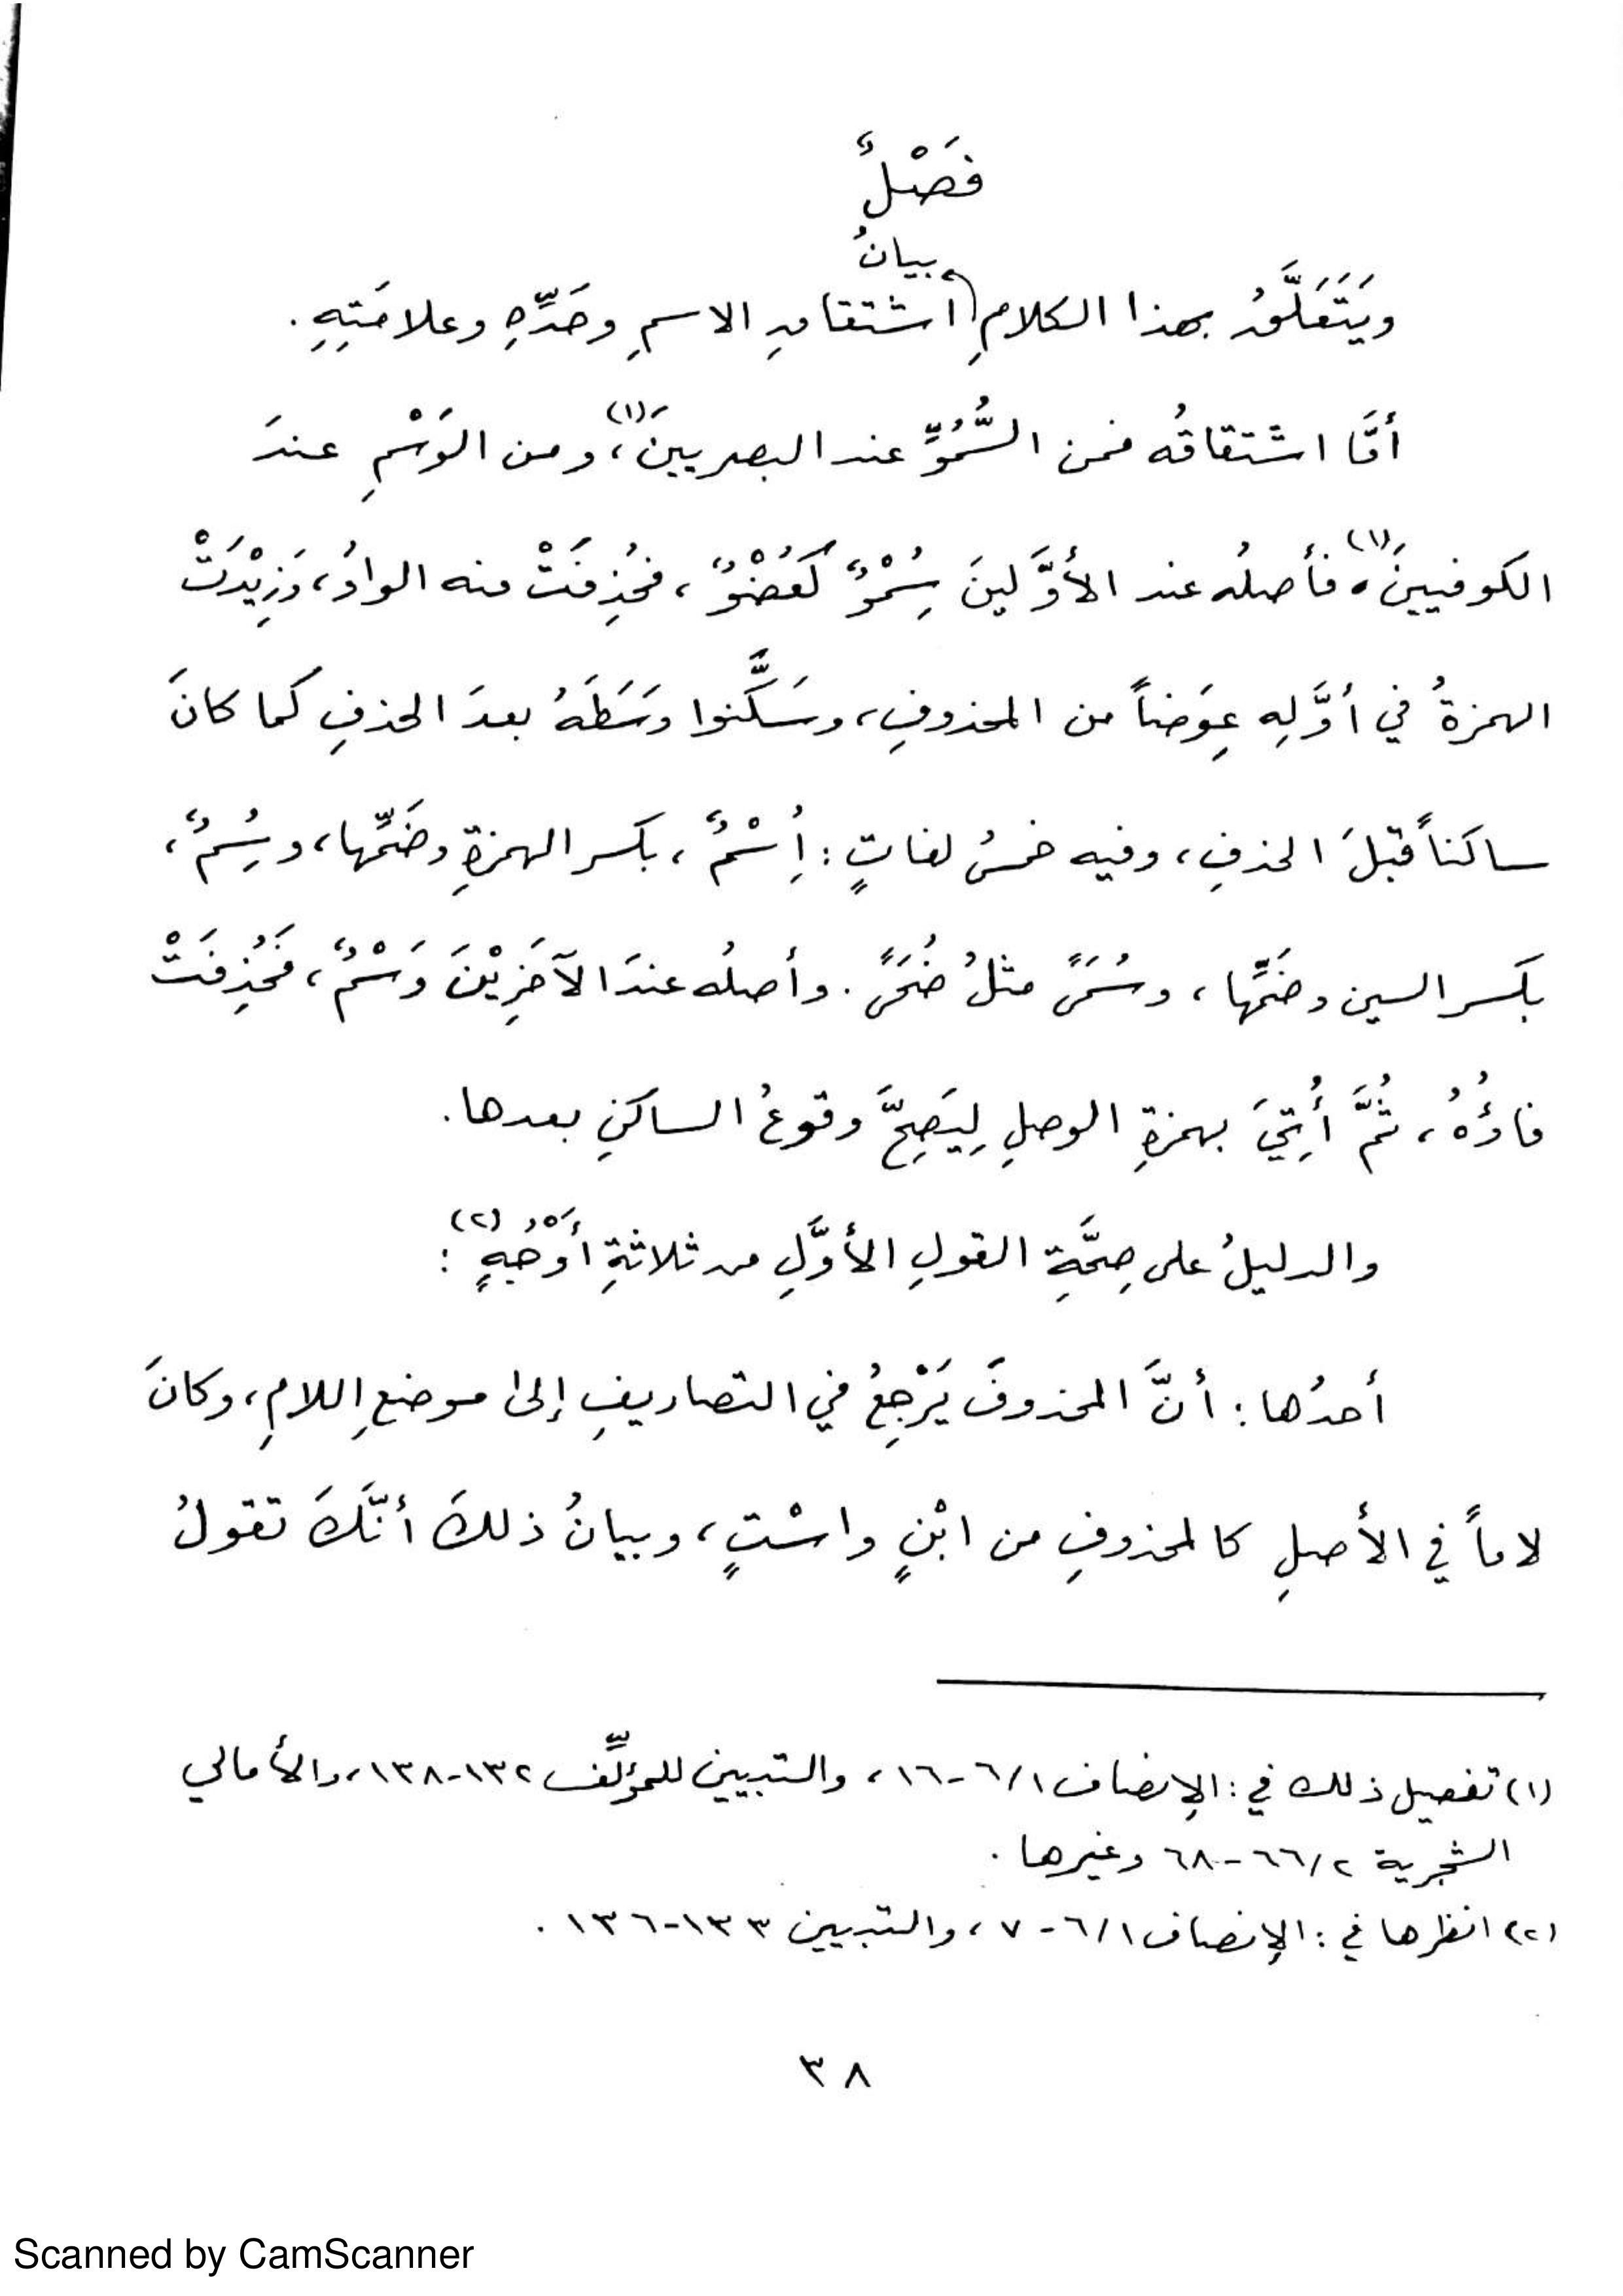 فَصْلٌ
بيانُ
ويَتَعَلَّقُ بهذا الكلامِ اشتقاقِ الاسمِ وحَدِّهِ وعلامَتِهِ.
أمَّا اشتقاقُه فمن السُّمُوِّ عند البصريينَ(١)، ومن الوَسْمِ عندَ
الكوفيينَ(١). فأصلُه عند الأوَّلينَ سُِمْوٌ كَعُضْوٌ، فحُذِفَتْ منه الواوُ، وَزِيْدَتْ
الهمزةُ في أوَّلِه عِوَضاً من المحذوفِ، وسَكَّنوا وسَطَهُ بعدَ الحذفِ كَما كانَ
ساكناً قبلَ الحذفِ، وفيه خمسُ لغاتٍ: اُِسْمٌ، بكسر الهمزةِ وضَمِّها، وسُِمٌ،
بكَسر السين وضَمِّها، وسُمَىً مثلُ ضُحَىً. وأصلُه عندَ الآخَرِيْنَ وَسْمٌ، فَحُذِفَتْ
فاؤُهُ، ثُمَّ أُتِيَ بهمزةِ الوصلِ لِيَصِحَّ وقوعُ الساكنِ بعدها.
والدليلُ على صِحَّةِ القولِ الأوَّلِ من ثلاثةِ أَوْجُهٍ(٢):
أحدُها: أنَّ المحذوفَ يَرْجِعُ في التصاريفِ إلىٰ موضعِ اللامِ، وكانَ
لاماً في الأصلِ كالمحذوفِ من ابْنٍ واسْتٍ، وبيانُ ذلكَ أنَّكَ تقولُ
(١) تفصيل ذلك في: الإنصاف ٦/١-١٦، والتبيين للمؤلِّف ١٣٢-١٣٨، والأمالي
الشجرية ٦٦/٢-٦٨ وغيرها.
(٢) انظرها في: الإنصاف ٦/١-٧، والتبيين ١٣٣-١٣٦.
٣٨
Scanned by CamScanner